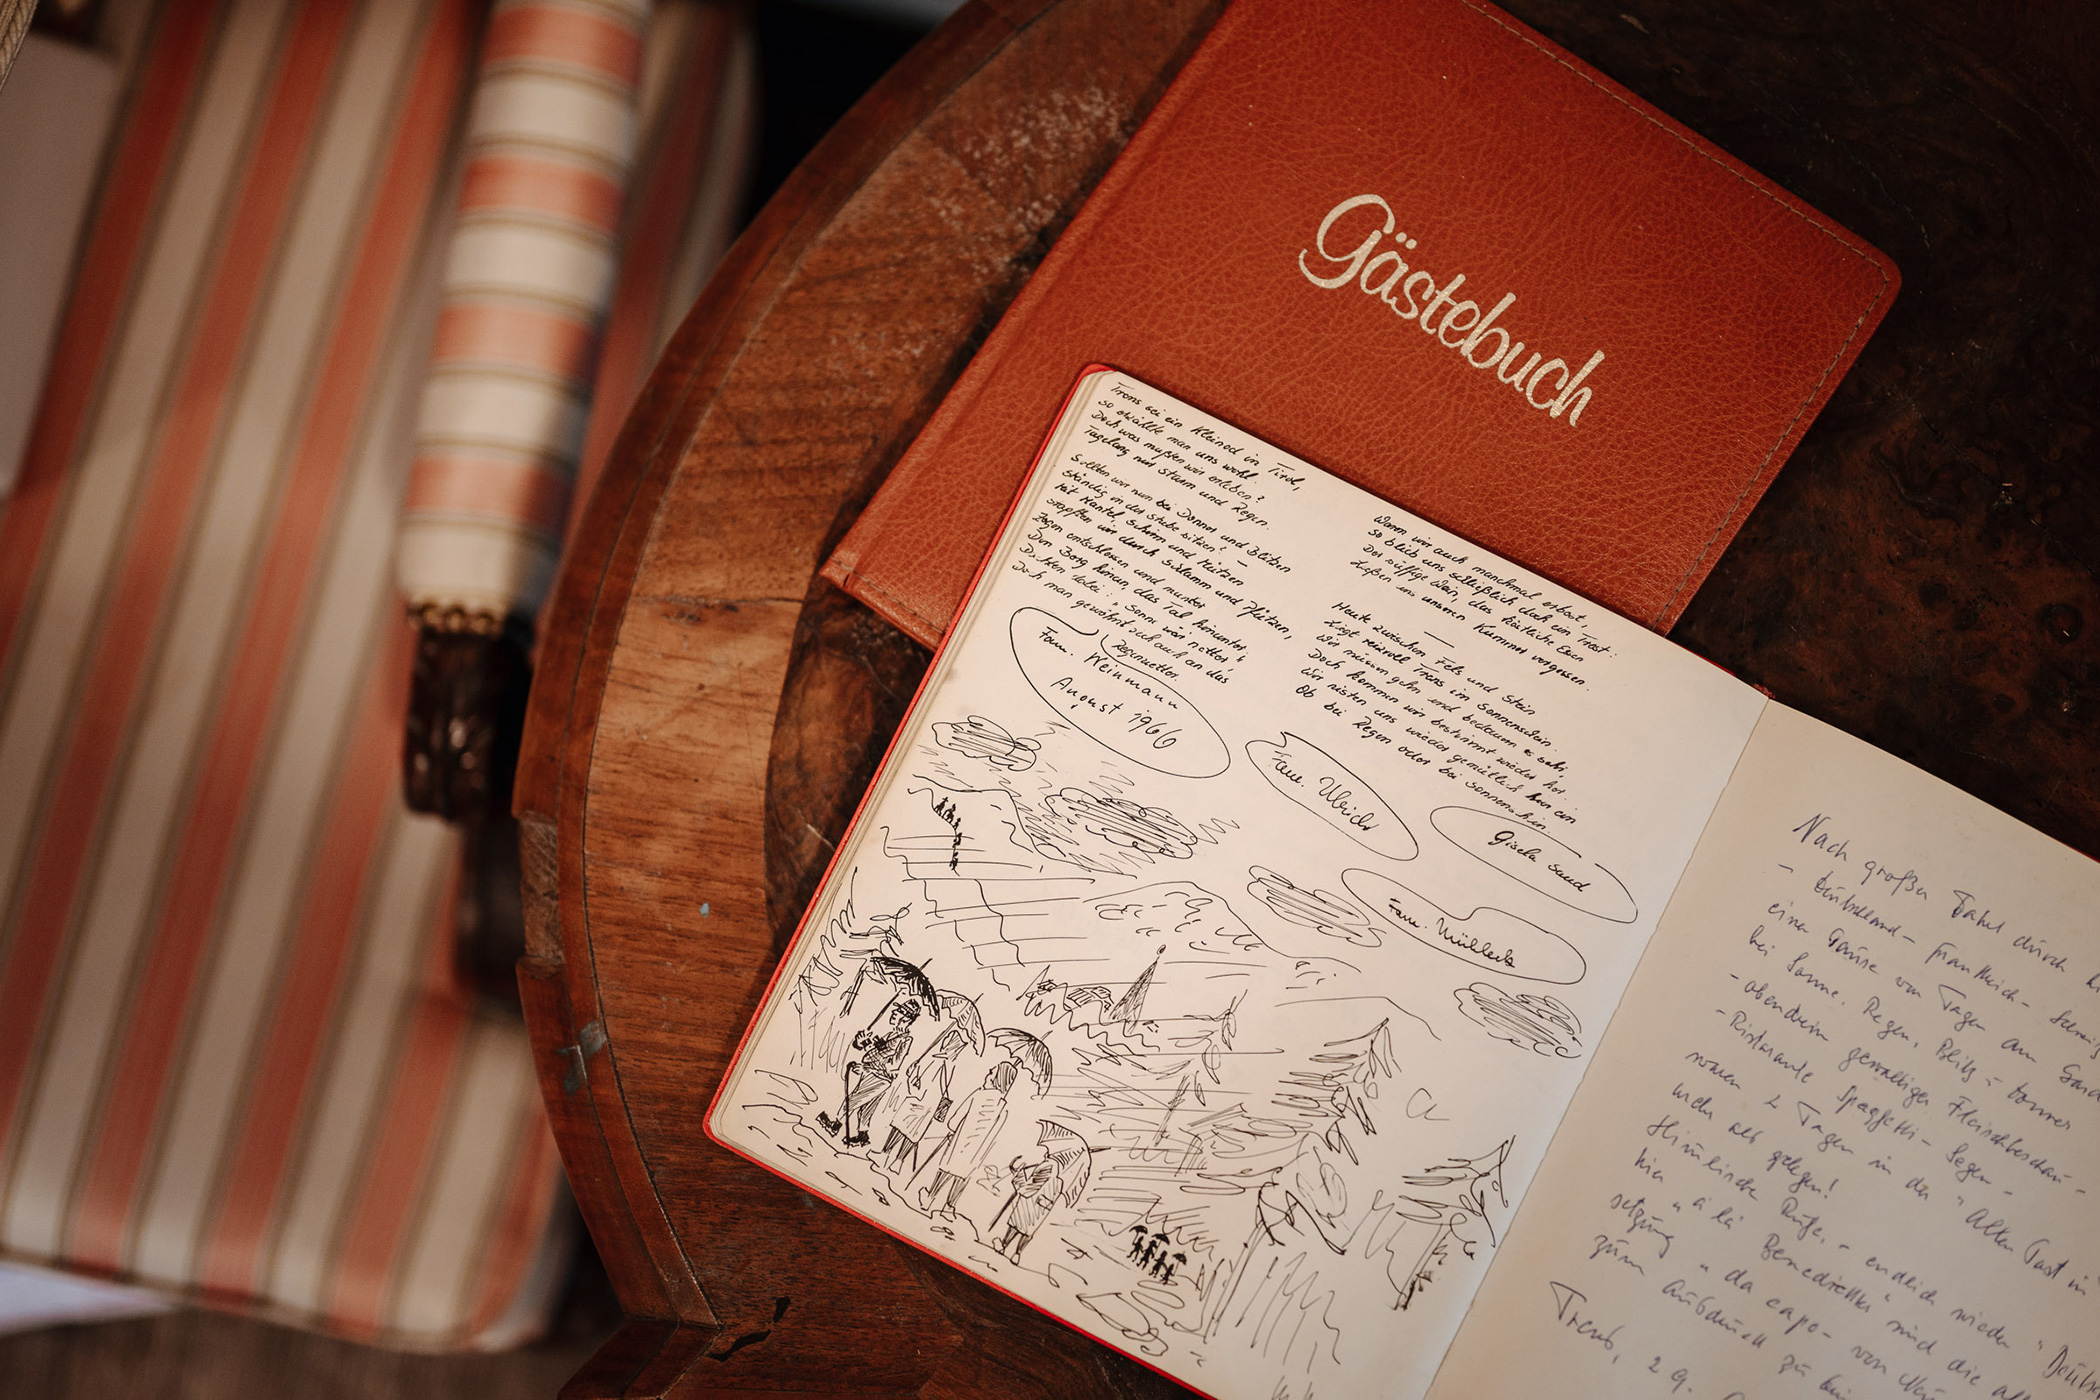 Gästebuch
Trens sei ein Kleinod in Tirol,
so erzählte man uns wohl.
Doch was mußten wir erleben?
Tagelang nur Sturm und Regen.
Sollten wir nun bei Donner und Blitzen
ständig in der Stube sitzen? –
Mit Mantel, Schirm und Mützen
stapften wir durch Schlamm und Pfützen,
Zogen entschlossen und munter
Den Berg hinan, das Tal hinunter.
Dachten dabei: "Sonne wär' netter,"
Doch man gewöhnt sich auch an das
Regenwetter.
Waren wir auch manchmal erbost,
So blieb uns schließlich doch ein Trost:
Der süffige Wein, das köstliche Essen
Ließen uns unseren Kummer vergessen.
Heute zwischen Fels und Stein
Liegt reizvoll Trens im Sonnenschein.
Wir müssen gehn und bedauern es sehr,
Doch kommen wir bestimmt wieder her.
Wir nisten uns wieder gemütlich hier ein
Ob bei Regen oder bei Sonnenschein.
Fam. Weinmann
August 1966
Fam. Ulrich
Gisela Sand
Fam. Müllerb
Nach großer Fahrt durch
- Deutschland - Frankreich -
einer Pause von Tagen am
bei Sonne, Regen, Blitz - Donner
- obendrein gewaltiger Fleischbeschau -
- Ristorante Spaghetti - Segen -
waren 2 Tagen in der "Alten Post in
mehr als gelegen!
Himmlische Ruhe, - endlich wieder
hier "à la Benedikta" und die
setzung "da capo - von
zum Ausdruck zu
Trens, 29.